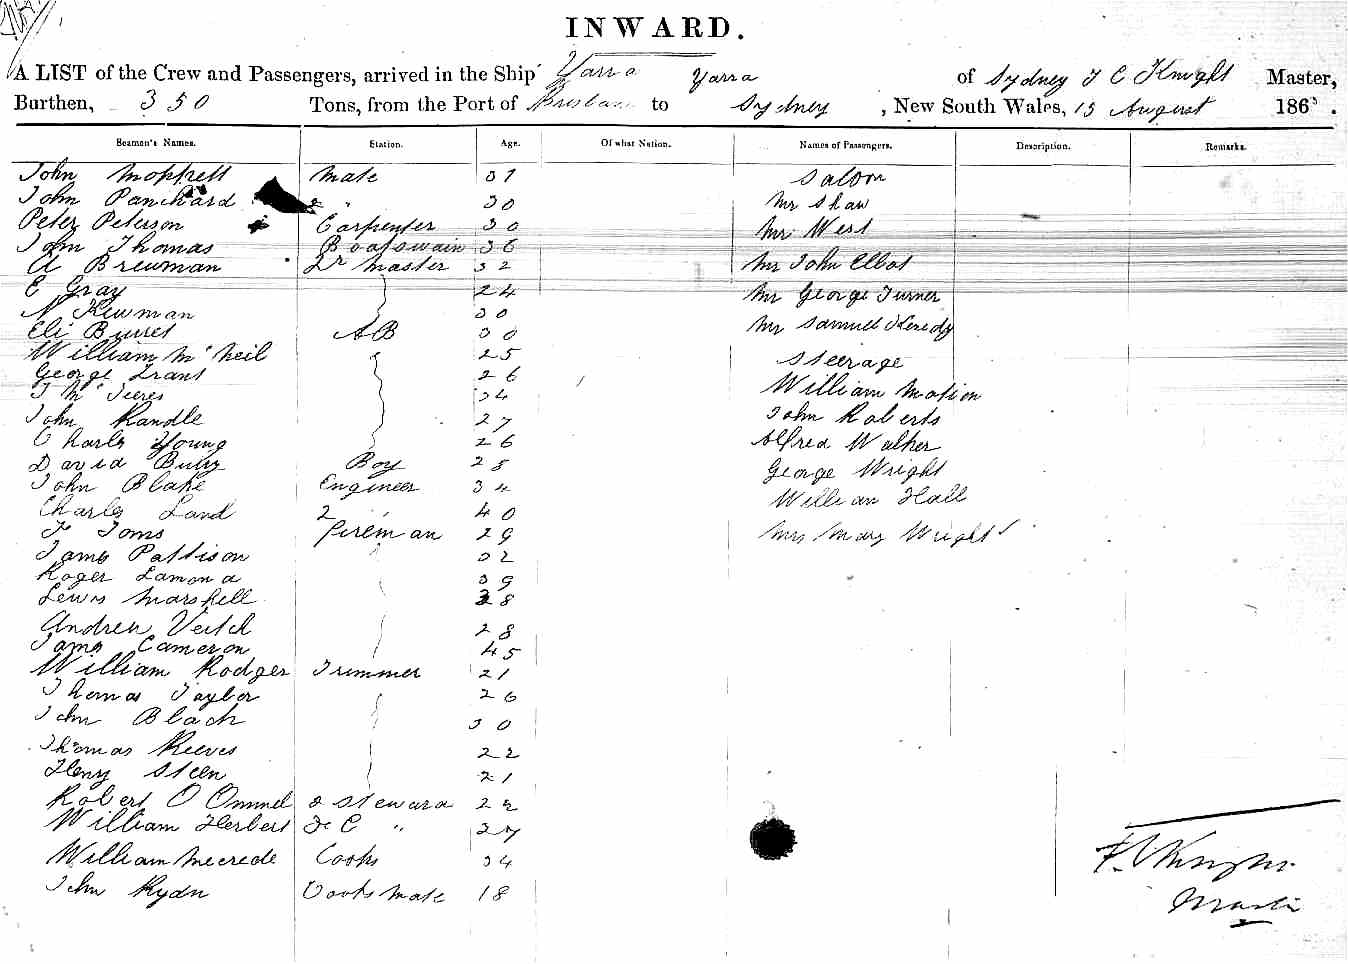 INWARD.
A LIST of the Crew and Passengers, arrived in the Ship Yarra Yarra of Sydney Knight Master,
Burthen, 350 Tons, from the Port of Brisbane to Sydney, New South Wales, 13 August 186
Seamen's Names. Station. Age. Of what Nation. Names of Passengers. Description. Remarks.
John Moppett Mate 37 Saloon
John Panchard 2 " 30 Mr Shaw
Peter Peterson Carpenter 30 Mr West
John Thomas Boatswain 36
A Brewman Lr Master 32 Mr John Elbot
E Gray 24 Mr George Turner
N Newman 30
Eli AB 30 Mr Samuel
William McNeil 25 Steerage
George Trant 26
34 William Motion
John Randle 27 John Roberts
Charls Young 26 Alfred Walker
David Boy 28 George Wright
John Blake Engineer 34 William Hall
Charls Land 2 " 40
F Toms Fireman 29 Mrs Mary Wright
James Pattison 32
Roger Lamond 39
Lewis Marshell 38
Andrew Veitch 28
James Cameron 45
William Rodger Trimmer 21
Thomas Taylor 26
John Black 30
Thomas Reeves 22
Henry Steen 21
Robert O Steward 22
William Herbert F C " 27
William Cook 34
John Rydn Cooks Mate 18
Knight
Master